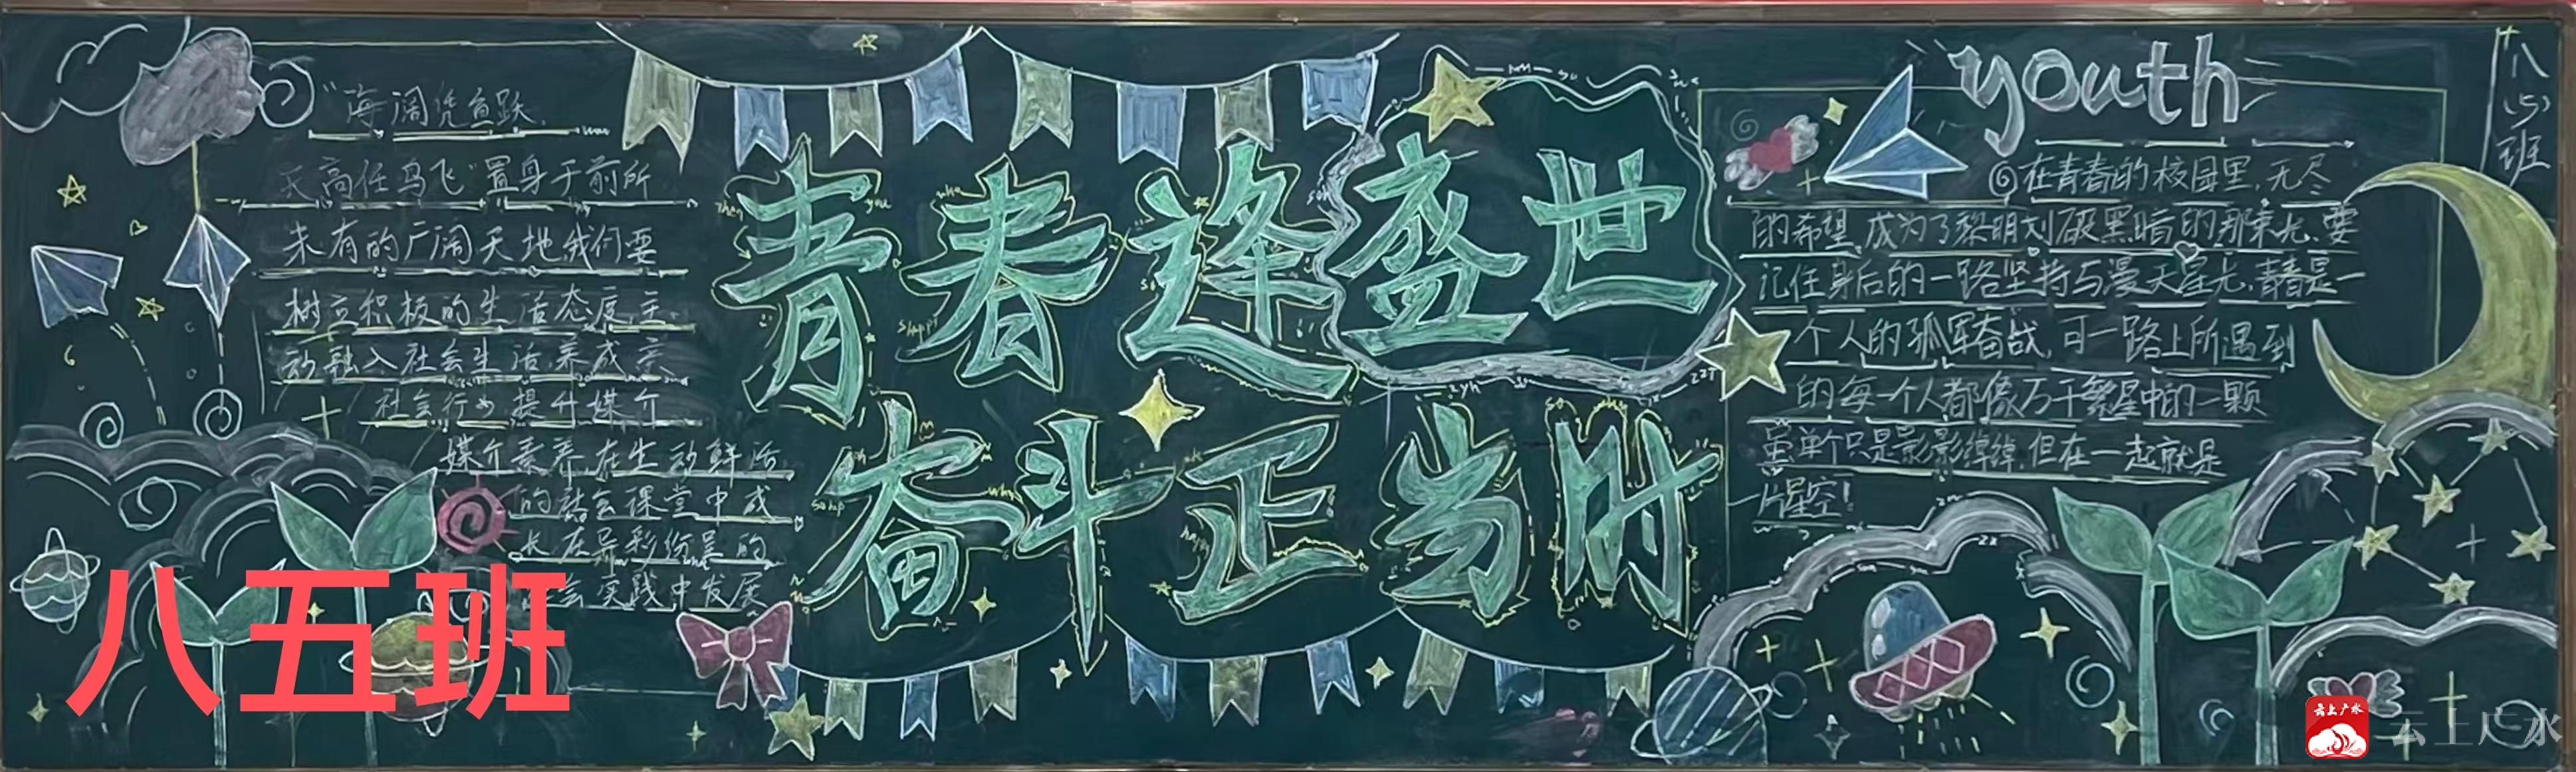 青春逢盛世
奋斗正当时
"海阔凭鱼跃，
天高任鸟飞"置身于前所
未有的广阔天地我们要
树立积极的生活态度，主
动融入社会生活养成亲
社会行为提升媒介
媒介素养，在生动鲜活
的社会课堂中成
长在异彩纷呈的
会实践中发展
youth
在青春的校园里，无尽
的希望，成为了黎明划破黑暗的那束光，要
记住身后的一路坚持与漫天星光，青春是一
个人的孤军奋战，可一路上所遇到
的每一个人都像万千繁星中的一颗
虽单个只是影影绰绰，但在一起就是
一片星空！
八（5）班
八五班
云上广水
云上广水